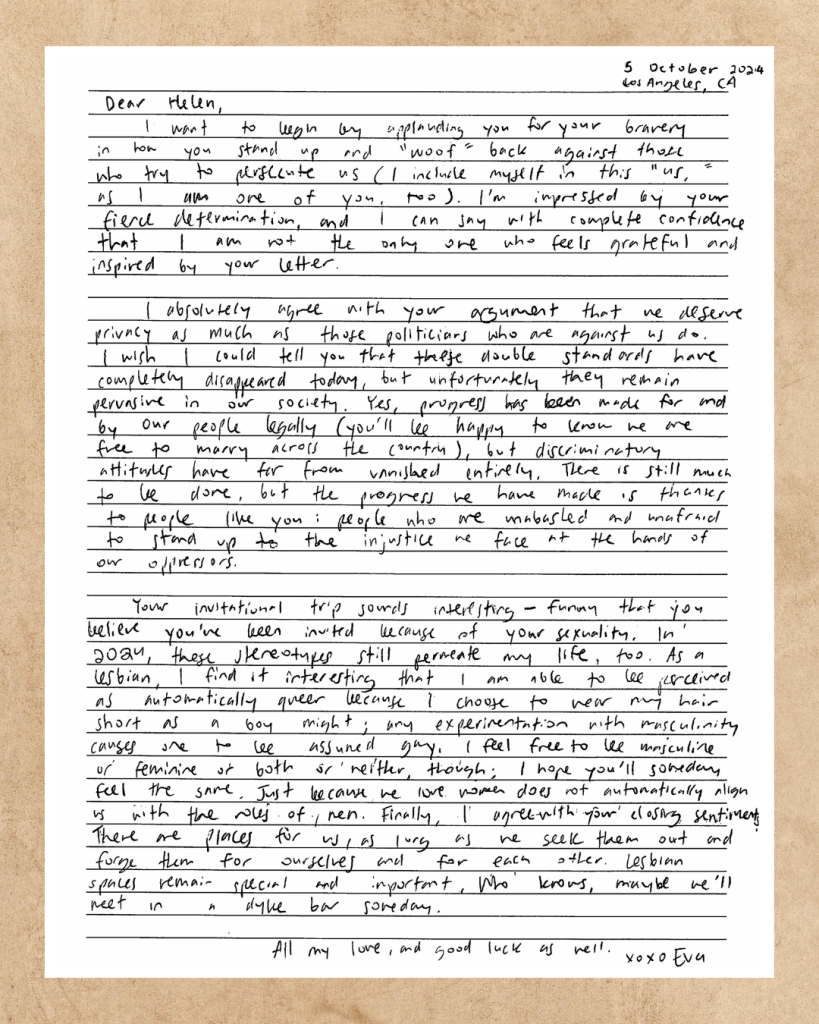 5 October 2024
Los Angeles, CA
Dear Helen,
I want to begin by applauding you for your bravery
in how you stand up and "woof" back against those
who try to persecute us (I include myself in this "us,"
as I am one of you, too). I'm impressed by your
fierce determination, and I can say with complete confidence
that I am not the only one who feels grateful and
inspired by your letter.
I absolutely agree with your argument that we deserve
privacy as much as those politicians who are against us do.
I wish I could tell you that these double standards have
completely disappeared today, but unfortunately they remain
pervasive in our society. Yes, progress has been made for and
by our people legally (you'll be happy to know we are
free to marry across the country), but discriminatory
attitudes have far from vanished entirely. There is still much
to be done, but the progress we have made is thanks
to people like you: people who are unabashed and unafraid
to stand up to the injustice we face at the hands of
our oppressors.
Your invitational trip sounds interesting – funny that you
believe you've been invited because of your sexuality. In
2024, these stereotypes still permeate my life, too. As a
lesbian, I find it interesting that I am able to be perceived
as automatically queer because I choose to wear my hair
short as a boy might; any experimentation with masculinity
causes one to be assumed gay. I feel free to be masculine
or feminine or both or neither, though; I hope you'll someday
feel the same. Just because we love women does not automatically align
us with the roles of men. Finally, I agree with your closing sentiment.
There are places for us, as long as we seek them out and
forge them for ourselves and for each other. Lesbian
spaces remain special and important. Who knows, maybe we'll
meet in a dyke bar someday.
All my love, and good luck as well.
xoxo Eva